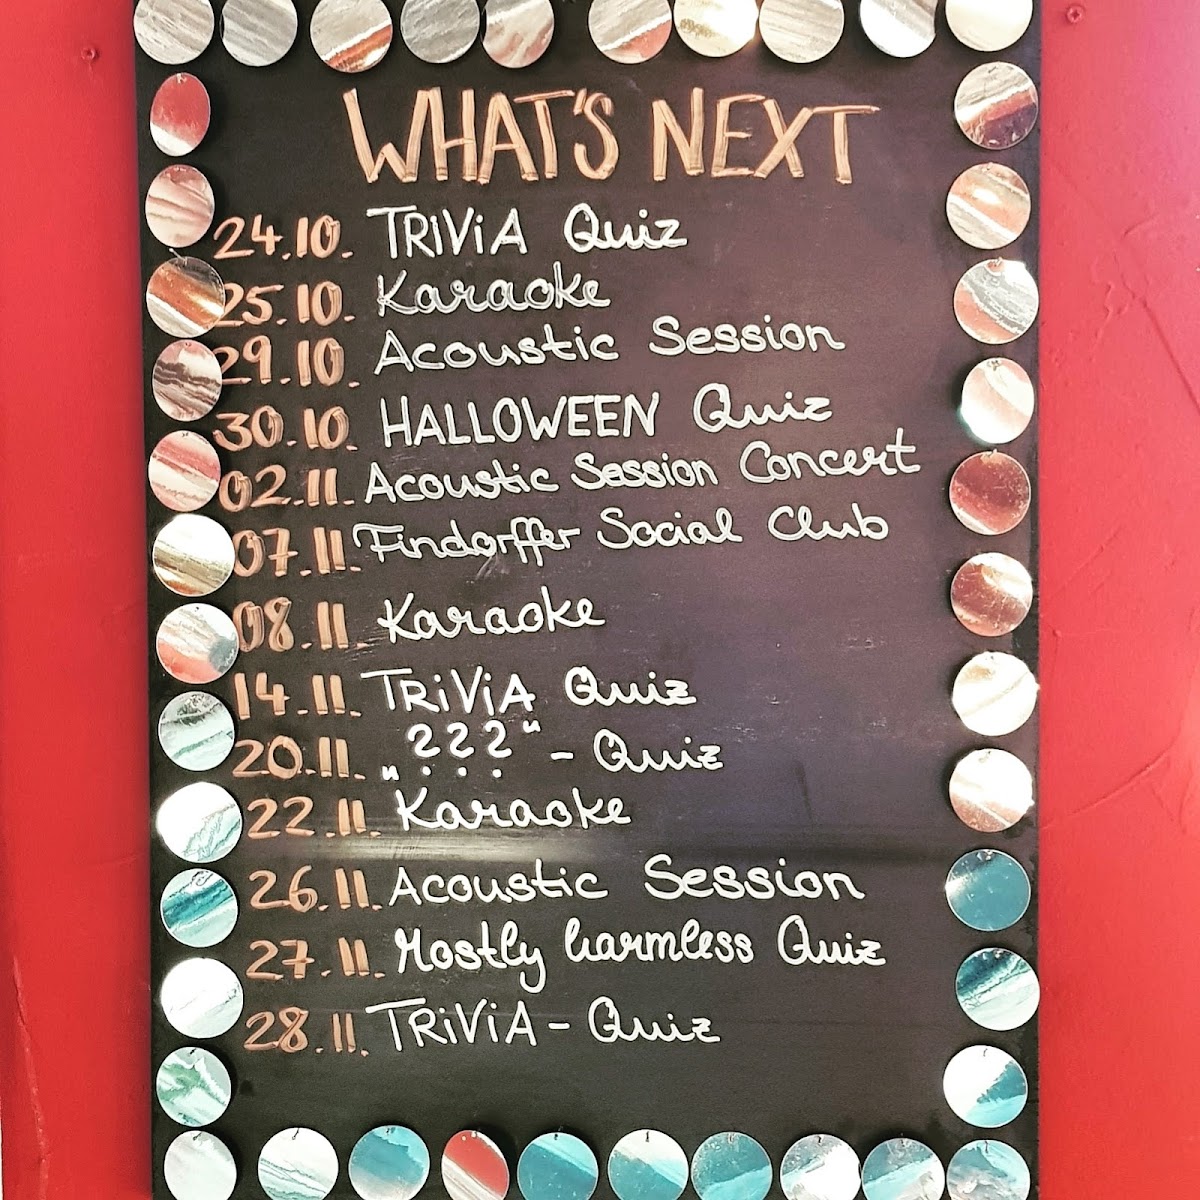 WHAT'S NEXT
24.10. TRiViA Quiz
25.10. Karaoke
29.10. Acoustic Session
30.10. HALLOWEEN Quiz
02.11. Acoustic Session Concert
07.11. Findorffer Social Club
08.11. Karaoke
14.11. TRiViA Quiz
20.11. „???“ - Quiz
22.11. Karaoke
26.11. Acoustic Session
27.11. Mostly harmless Quiz
28.11. TRiViA - Quiz